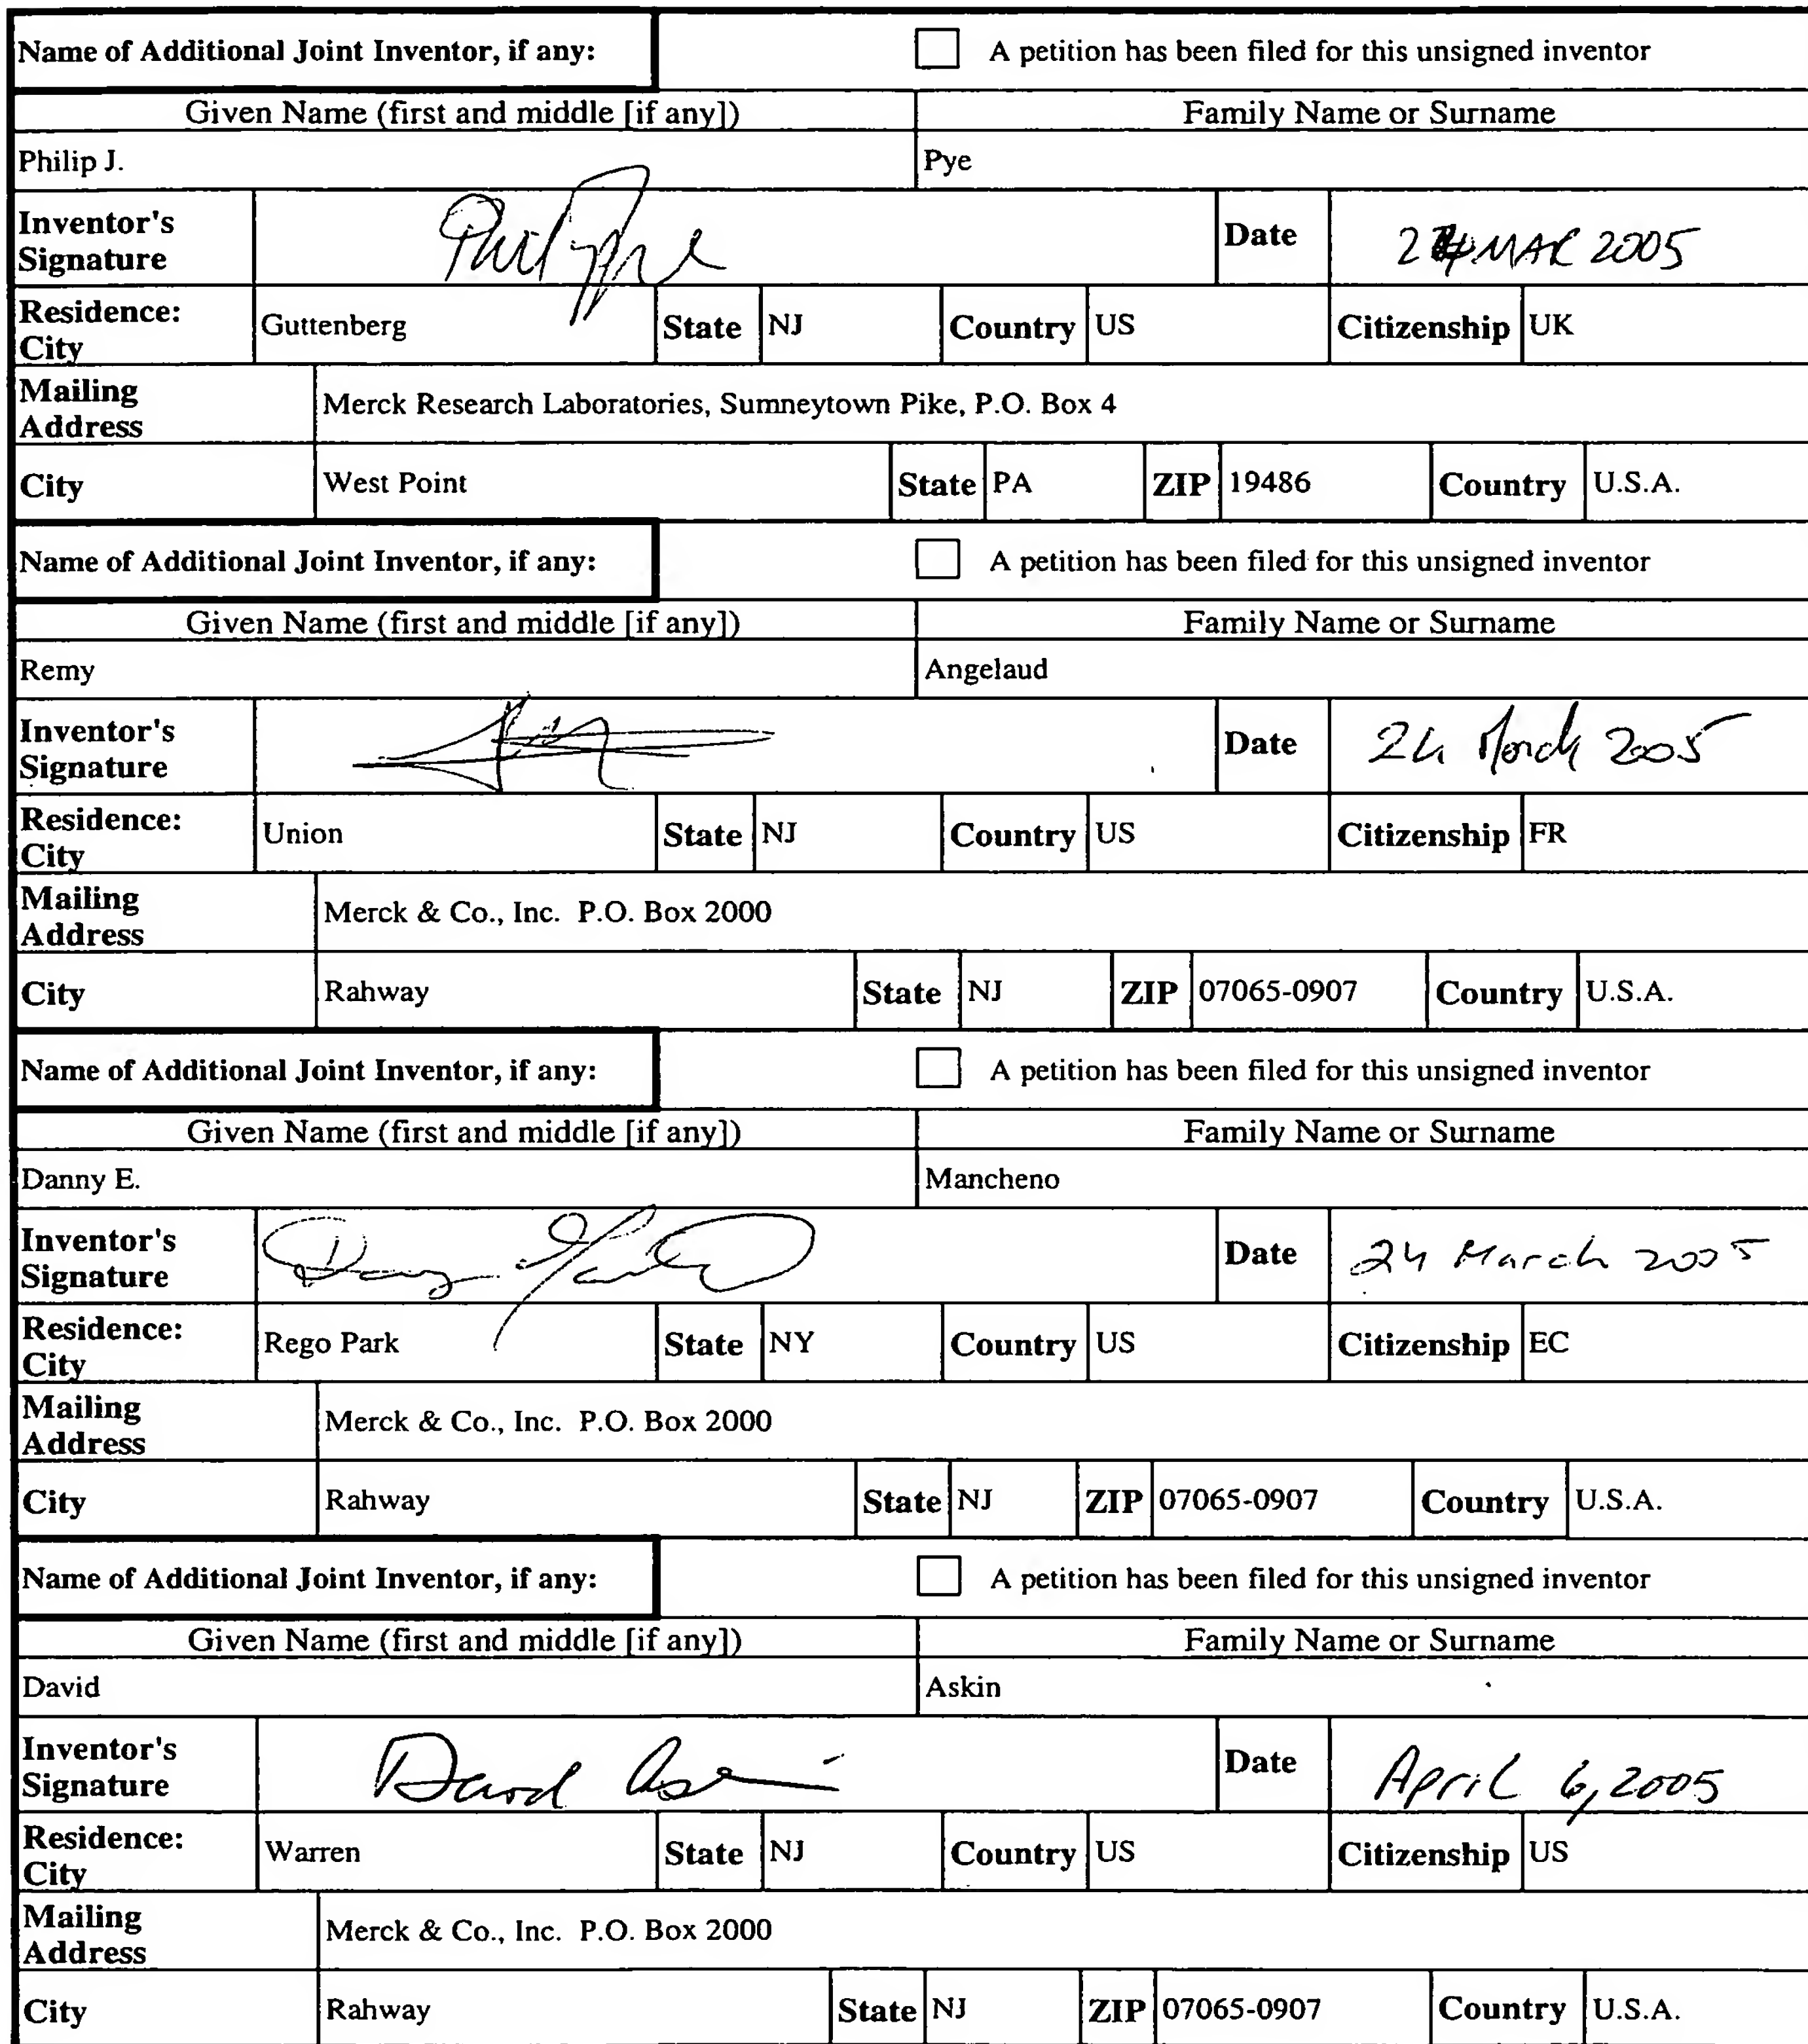 Name of Additional Joint Inventor, if any: A petition has been filed for this unsigned inventor
Given Name (first and middle [if any]) Family Name or Surname
Philip J. Pye
Inventor's Signature Date 24 MAR 2005
Residence: City Guttenberg State NJ Country US Citizenship UK
Mailing Address Merck Research Laboratories, Sumneytown Pike, P.O. Box 4
City West Point State PA ZIP 19486 Country U.S.A.
Name of Additional Joint Inventor, if any: A petition has been filed for this unsigned inventor
Given Name (first and middle [if any]) Family Name or Surname
Remy Angelaud
Inventor's Signature Date 24 March 2005
Residence: City Union State NJ Country US Citizenship FR
Mailing Address Merck & Co., Inc. P.O. Box 2000
City Rahway State NJ ZIP 07065-0907 Country U.S.A.
Name of Additional Joint Inventor, if any: A petition has been filed for this unsigned inventor
Given Name (first and middle [if any]) Family Name or Surname
Danny E. Mancheno
Inventor's Signature Date 24 March 2005
Residence: City Rego Park State NY Country US Citizenship EC
Mailing Address Merck & Co., Inc. P.O. Box 2000
City Rahway State NJ ZIP 07065-0907 Country U.S.A.
Name of Additional Joint Inventor, if any: A petition has been filed for this unsigned inventor
Given Name (first and middle [if any]) Family Name or Surname
David Askin
Inventor's Signature David Askin Date April 6, 2005
Residence: City Warren State NJ Country US Citizenship US
Mailing Address Merck & Co., Inc. P.O. Box 2000
City Rahway State NJ ZIP 07065-0907 Country U.S.A.